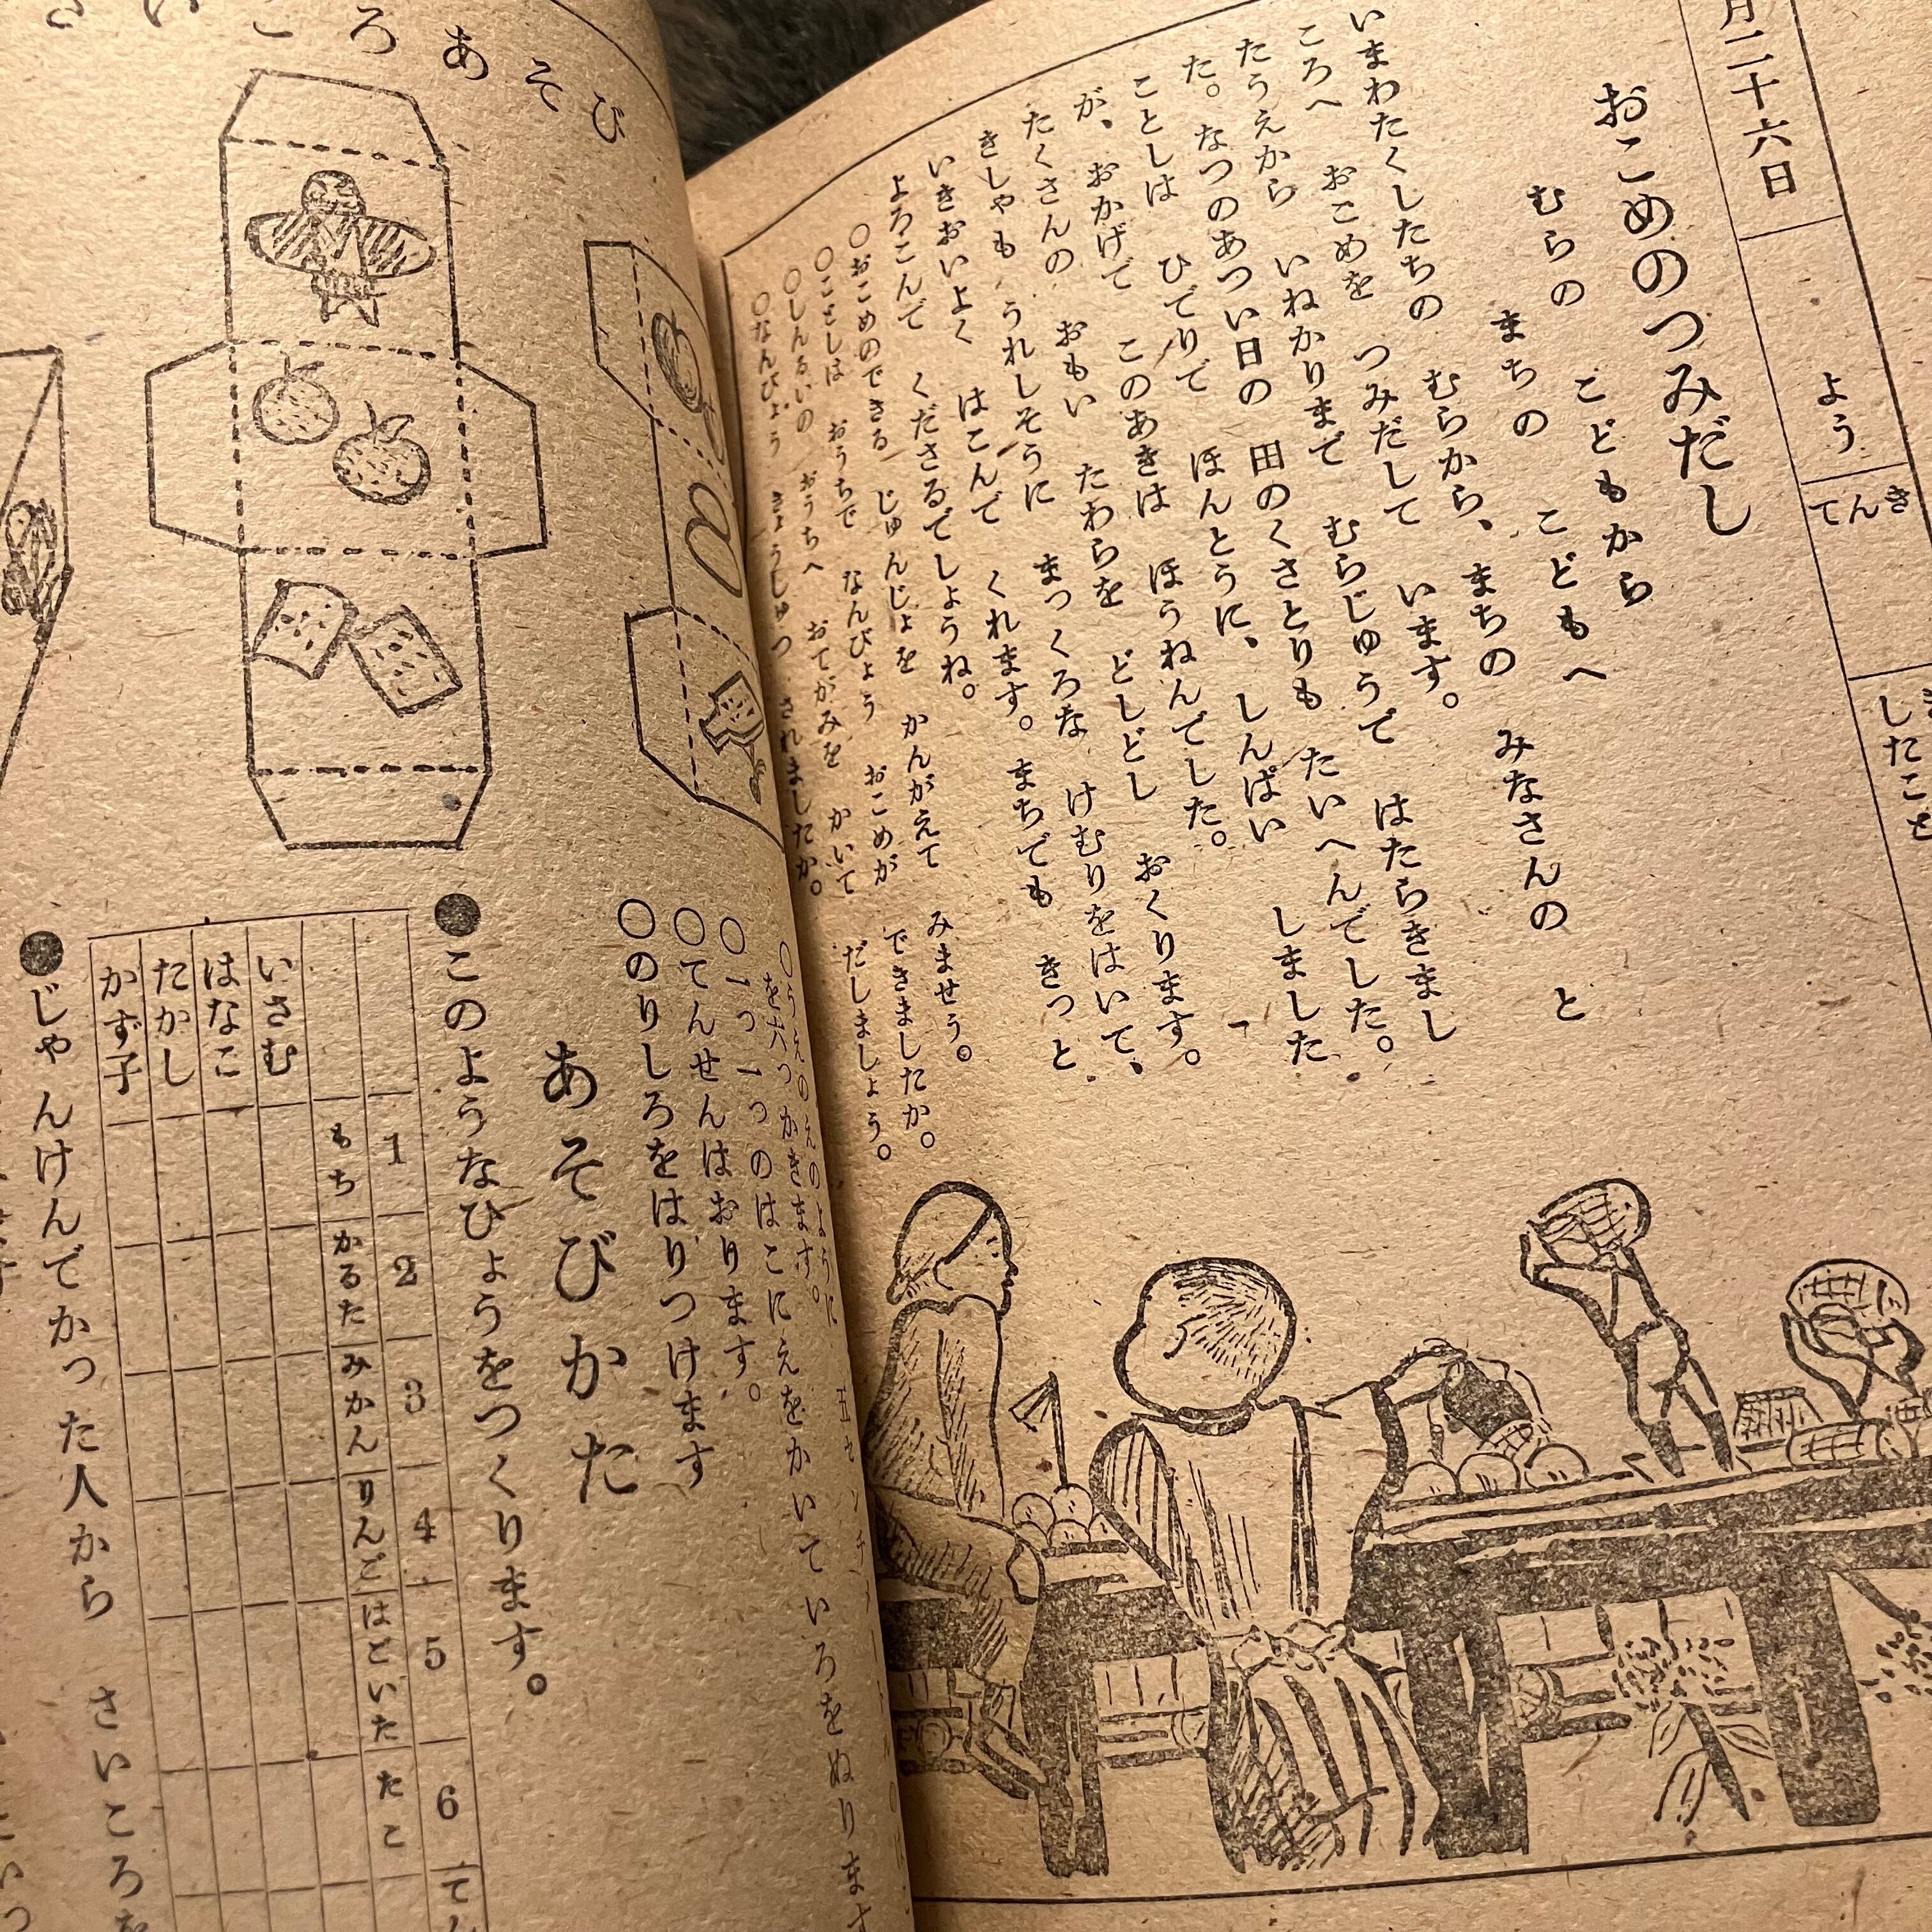 月二十六日
よう
てんき
したこと
おこめのつみだし
むらの　こどもから
まちの　こどもへ
いまわたくしたちの　むらから、まちの　みなさんの　と
ころへ　おこめを　つみだして　います。
たうえから　いねかりまで　むらじゅうで　はたらきまし
た。なつのあつい日の　田のくさとりも　たいへんでした。
ことしは　ひでりで　ほんとうに、しんぱい　しました
が、おかげで　このあきは　ほうねんでした。
たくさんの　おもい　たわらを　どしどし　おくります。
きしゃも　うれしそうに　まっくろな　けむりをはいて、
いきおいよく　はこんで　くれます。まちでも　きっと
よろこんで　くださるでしょうね。
○おこめのできる　じゅんじょを　かんがえて　みませう。
○ことしは　おうちで　なんびょう　おこめが　できましたか。
○しんるいの　おうちへ　おてがみを　かいて　だしましょう。
○なんびょう　きょうしゅつ　されましたか。
さいころあそび
○一つ一つのはこにえをかいていろをぬります
○てんせんはおります。
○のりしろをはりつけます
あそびかた
●このようなひょうをつくります。
1　2　3　4　5　6
もち　かるた　みかん　りんご　はごいた　たこ
いさむ
はなこ
たかし
かず子
●じゃんけんでかった人から　さいころを